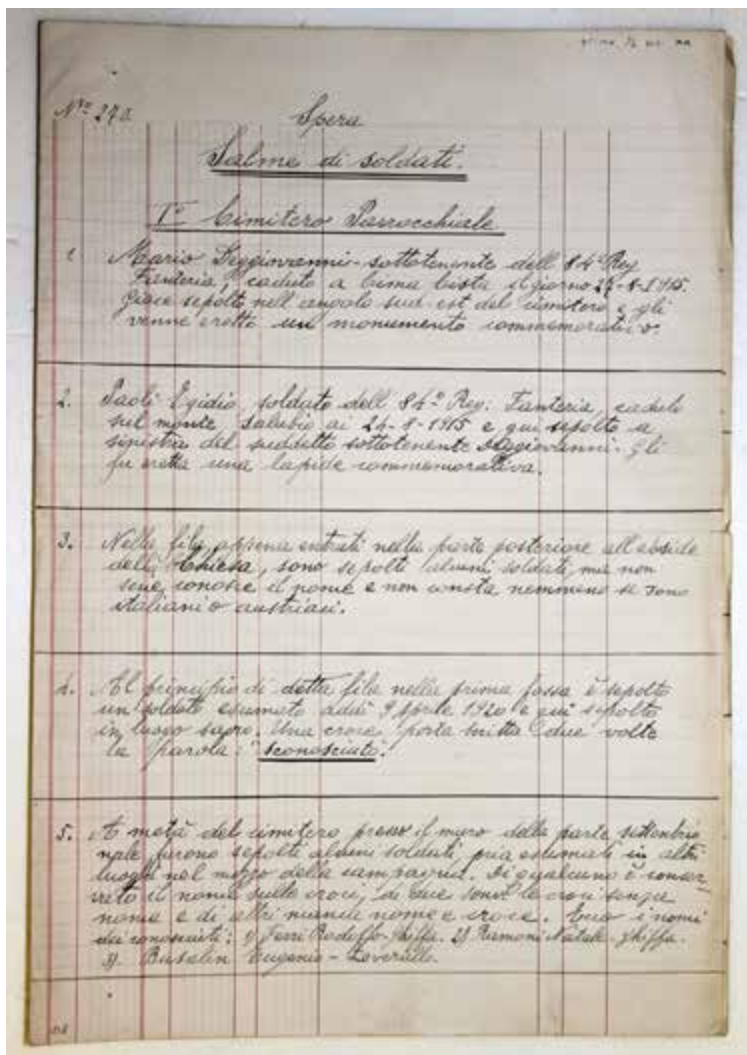 Nro 270
Spera
Salme di soldati.
I° Cimitero Parrocchiale
1 Mario Deggiovanni - sottotenente dell 84° Reg
Fanteria, caduto a Cima Cista il giorno 24-8-1915.
Giace sepolto nell'angolo sud-est del cimitero e gli
venne eretto un monumento commemorativo.
2. Paoli Egidio, soldato dell 84° Reg: Fanteria, caduto
sul monte Salubio ai 24-8-1915 e qui sepolto a
sinistra del suddetto sottotenente Deggiovanni. Gli
fu eretta una lapide commemorativa.
3. Nella fila appena entrati nella parte posteriore all'abside
della Chiesa, sono sepolti alcuni soldati, ma non
se ne conosce il nome e non consta nemmeno se sono
italiani o austriaci.
4. Al principio di detta fila nella prima fossa è sepolto
un soldato esumato addì 9 Aprile 1920 e qui sepolto
in luogo sacro. Una croce porta scritta due volte
la parola: "sconosciuto".
5. A metà del cimitero presso il muro della parte settentrio
nale furono sepolti alcuni soldati, pria esumati in altri
luoghi nel mezzo della campagna. Di qualcuno è conser-
vato il nome sulle croci, di due sonvi le croci senza
nome e di altri manca nome e croce. Ecco i nomi
dei conosciuti: 1) Ferri Rodolfo - Ghiffa. 2) Ramoni Natale - Ghiffa.
3) Eugenio -